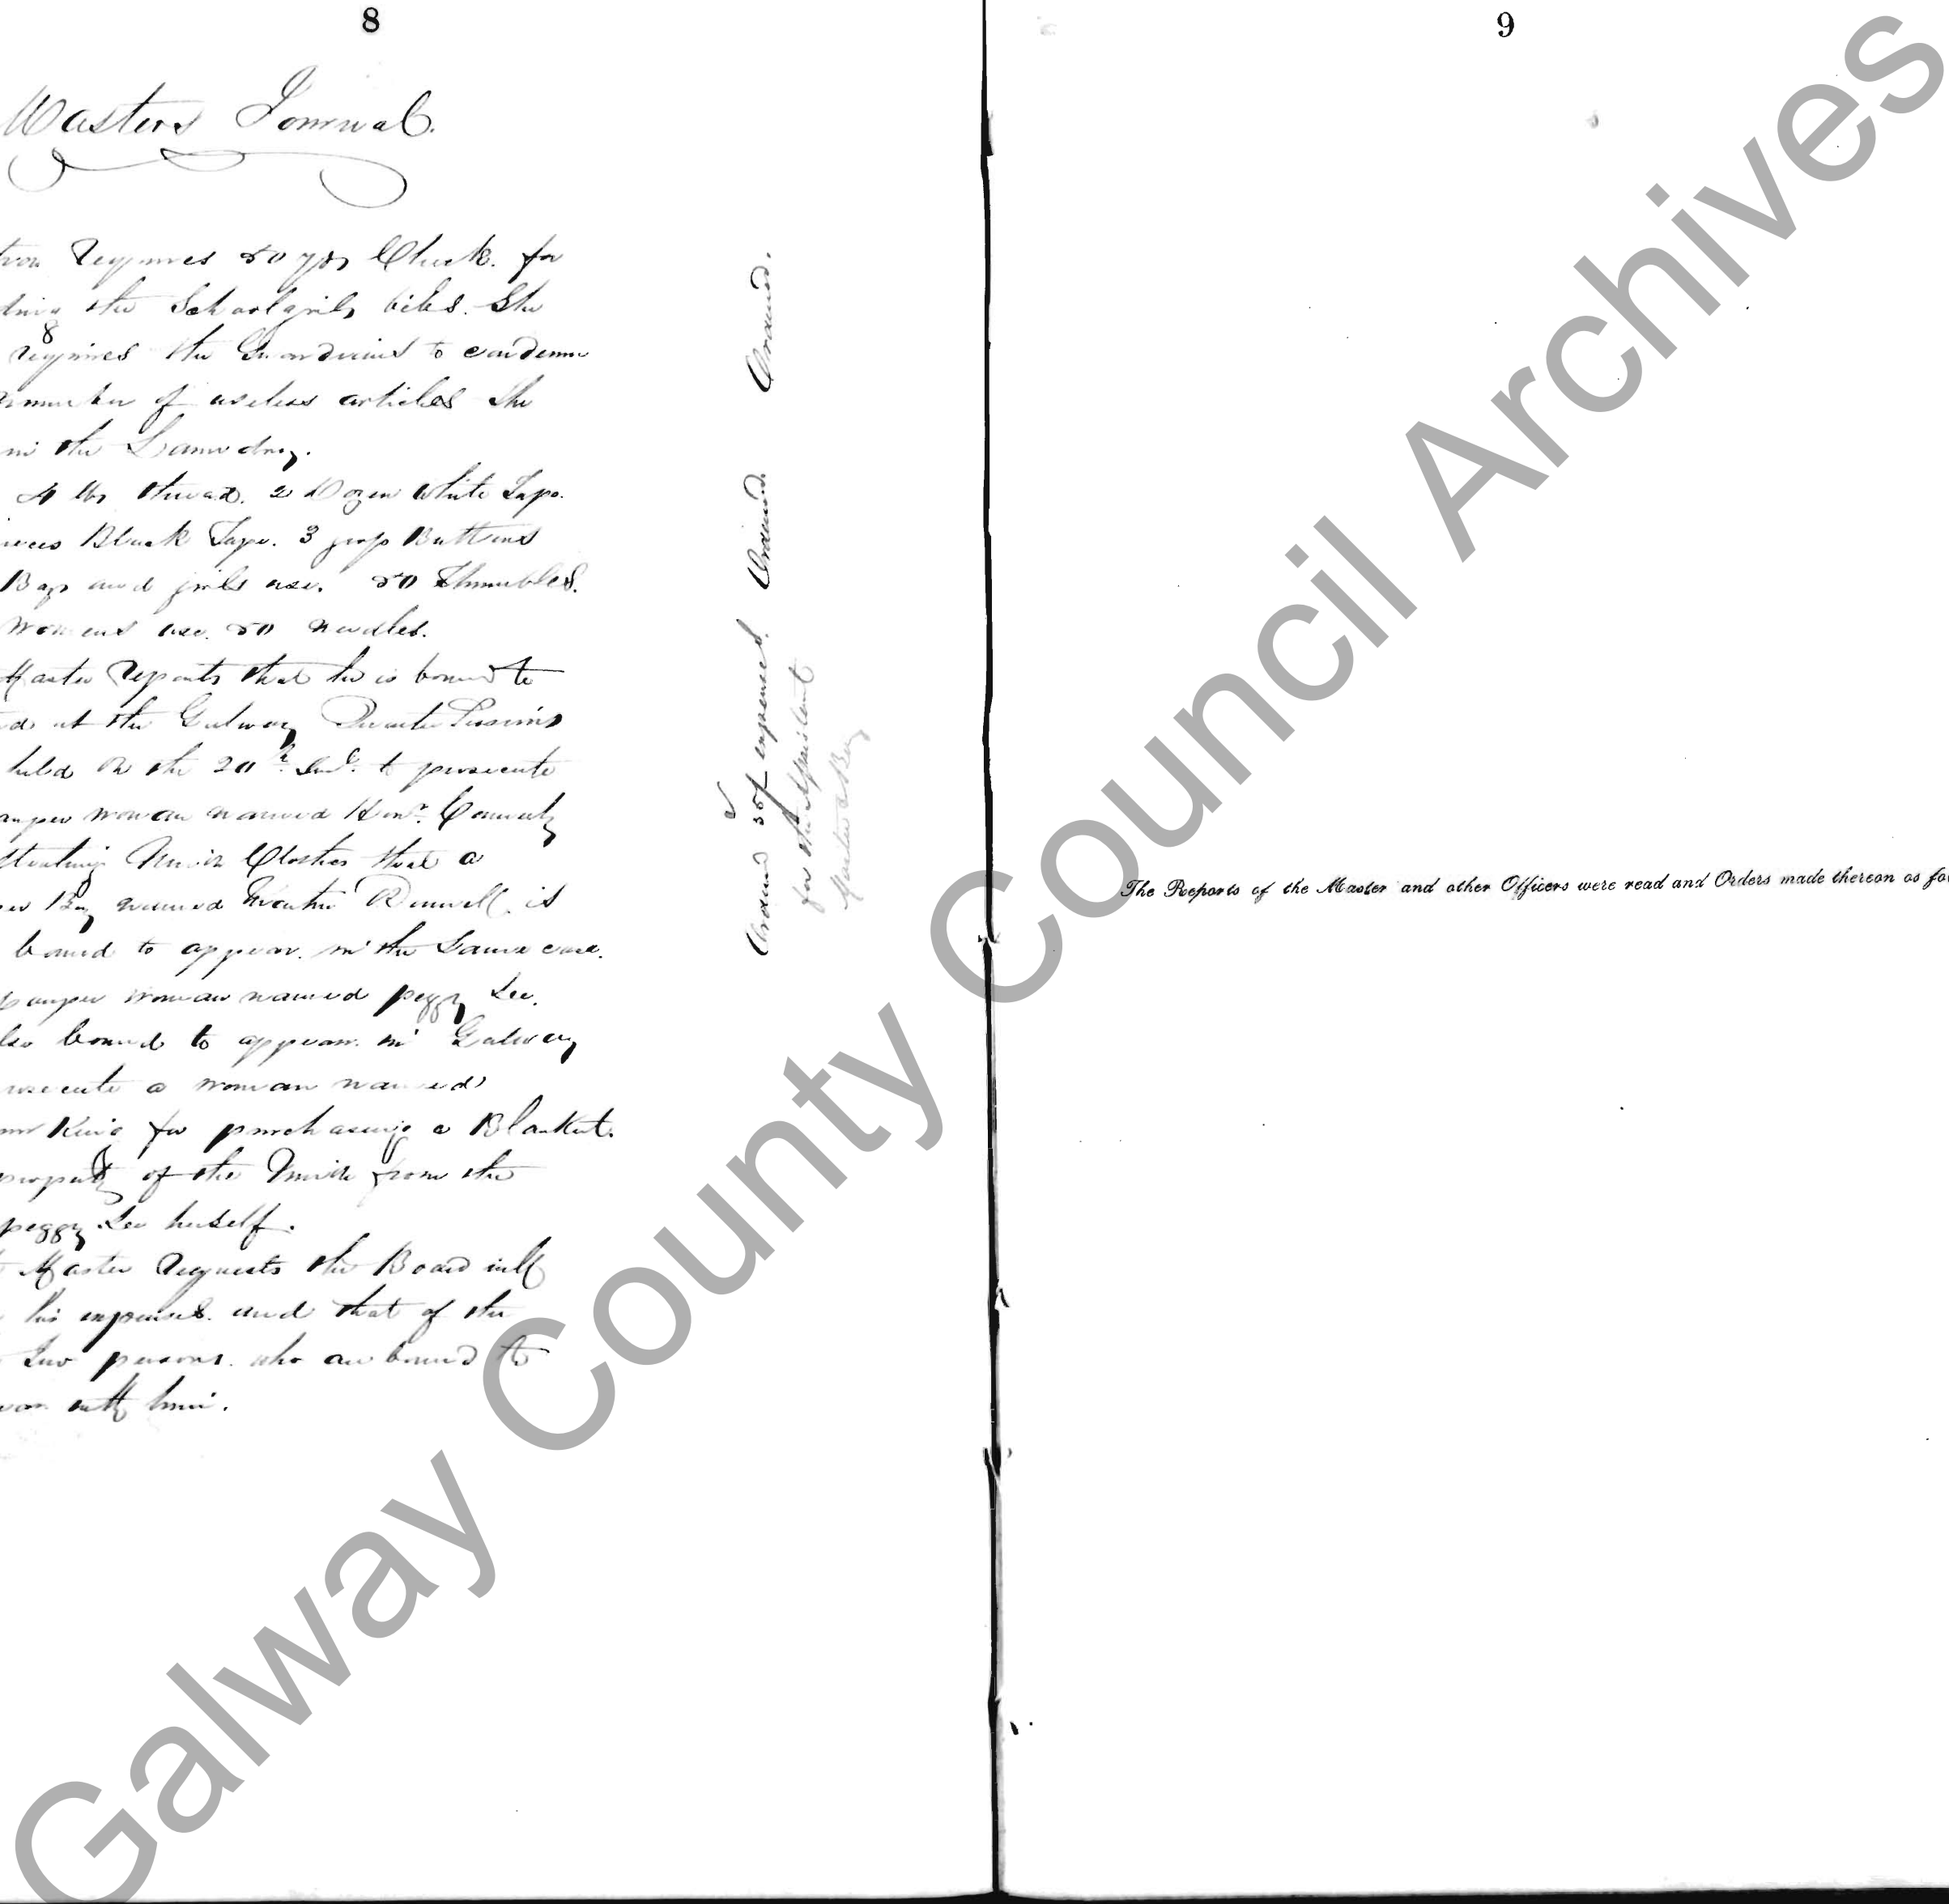 8
Masters Journal.
requires 50 yds Check. for
the Schoolgirls bibs. She
requires the Guardians to condemn
number of useless articles she
in the Laundry.
4 lbs thread. 2 Dozen White Tape.
Black Tape. 3 gross Buttons
Boys and girls use. 50 Thimbles.
Womens use. 50 needles.
Master Reports that he is bound to
at the Galway Quarter Sessions
held on the 20th Inst. to prosecute
woman named Honr.
Stealing Union Clothes that a
Boy named is
bound to appear in the same case.
pauper woman named peggy Lee.
bound to appear in Galway
a woman named
King for purchasing a Blanket.
property of the Union from the
peggy Lee herself.
Master Requests the Board will
his expenses and that of the
Two persons who are bound to
with him.
Ordered.
Ordered.
Ordered expenses.
for the
Master & Boy
9
The Reports of the Master and other Officers were read and Orders made thereon as fo
Galway County Council Archives